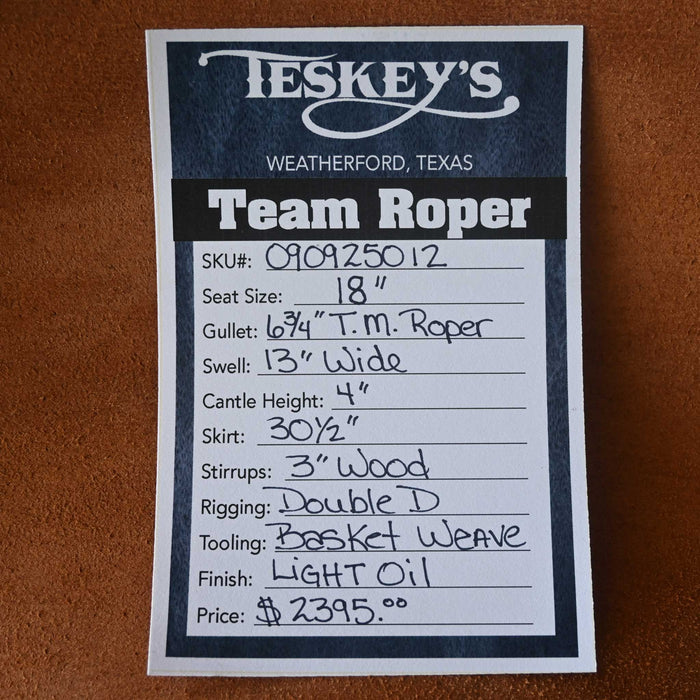 TESKEY'S
WEATHERFORD, TEXAS
Team Roper
SKU#: 090925012
Seat Size: 18"
Gullet: 6¾" T.M. Roper
Swell: 13" Wide
Cantle Height: 4"
Skirt: 30½"
Stirrups: 3" Wood
Rigging: Double D
Tooling: Basket Weave
Finish: Light Oil
Price: $2395.00